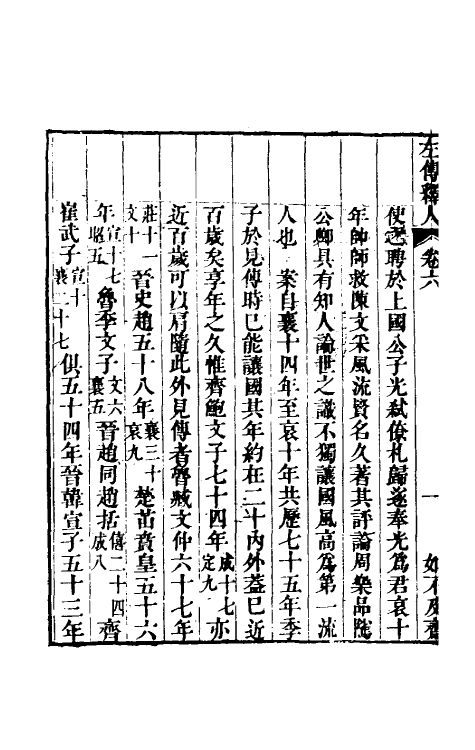 左傳釋人 卷六 一 如不及齋
使聘於上國公子光弒僚札歸遂奉光爲君哀十
年帥師救陳文采風流賢名久著其評論周樂品隲
公卿具有知人論世之識不獨讓國風高爲第一流
人也 案自襄十四年至哀十年共歷七十五年季
子於見傳時巳能讓國其年約在二十內外葢巳近
百歲矣享年之久惟齊鮑文子七十四年成十七定九亦
近百歲可以肩隨此外見傳者魯臧文仲六十七年
莊十一文十晉史趙五十八年襄三十哀九楚苗賁皇五十六
年宣十七昭五魯季文子文六襄五晉趙同趙括僖二十四成八齊
崔武子宣十襄二十七俱五十四年晉韓宣子五十三年